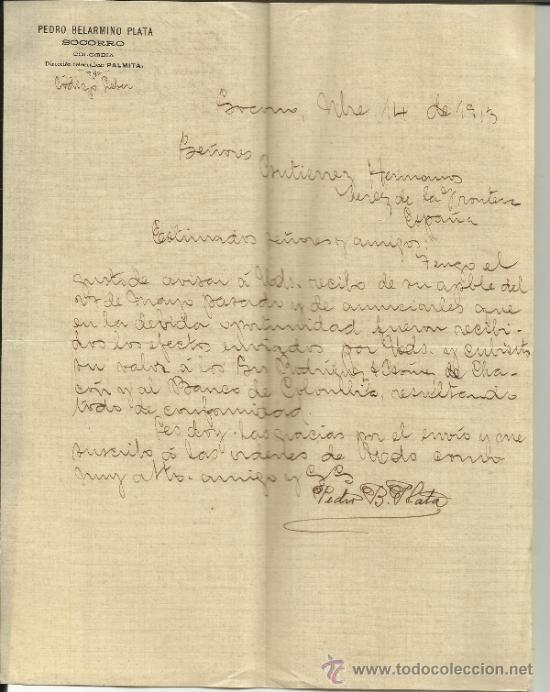 PEDRO BELARMINO PLATA
SOCORRO
COLOMBIA
PALMITA
Código Lieber
Socorro, Nbre 14 de 1913
Señores
Gutierrez Hermanos
Jerez de la Frontera
España
Estimados señores y amigos:
Tengo el
gusto de avisar á Uds. recibo de su apble del
de Mayo pasado y de anunciarles que
en la debida oportunidad fueron recibi-
dos los efectos enviados por Uds. y cubierto
su valor á los Srs Rodríguez & de Cha-
cón y al Banco de Colombia, resultando
todo de conformidad.
Les doy las gracias por el envío y me
suscribo á las órdenes de Uds como
muy atto. amigo y SS
Pedro B. Plata
www.todocoleccion.net